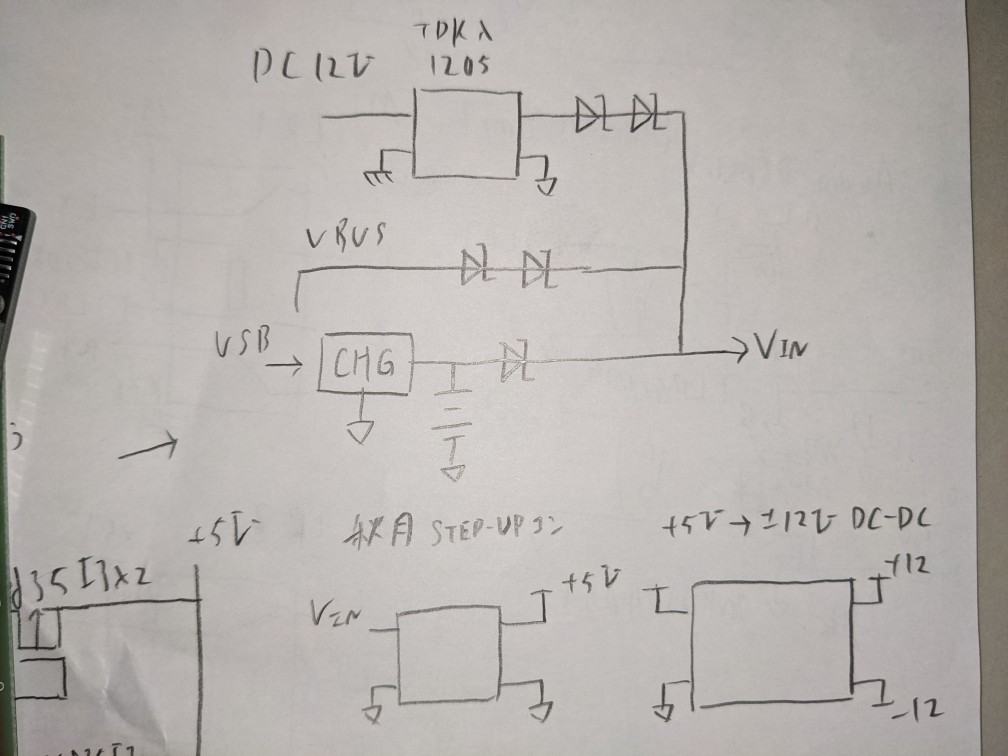 TDK λ
DC12V
1205
VBUS
USB
CHG
VIN
+5V
秋月 STEP-UP コン
+5V→±12V DC-DC
+12
VIN
+5V
-12